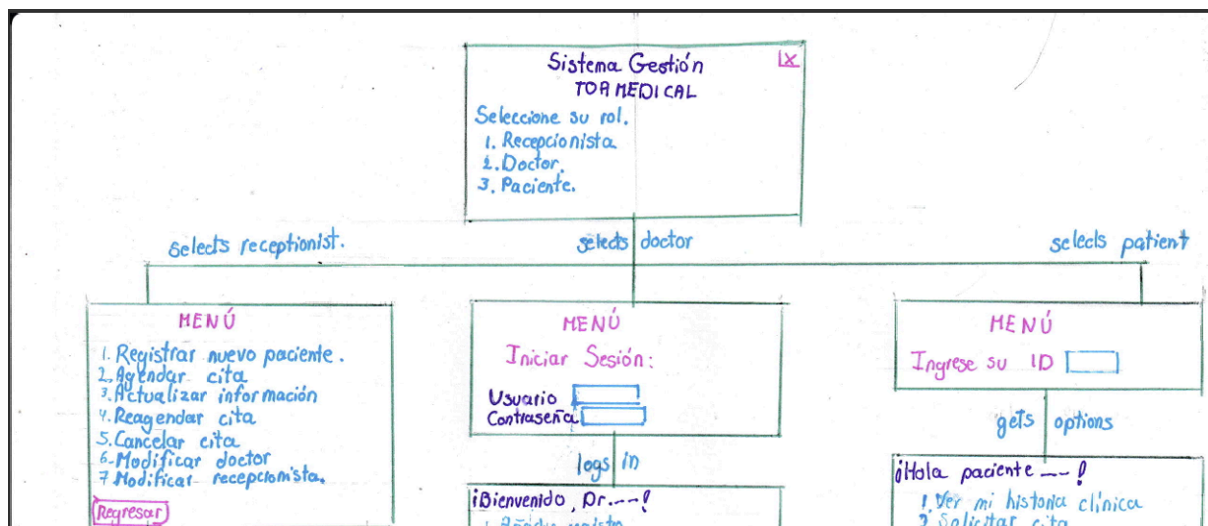 Sistema Gestión
TOA MEDICAL
X
Seleccione su rol.
1. Recepcionista
2. Doctor.
3. Paciente.
selects receptionist.
selects doctor
selects patient
MENÚ
1. Registrar nuevo paciente.
2. Agendar cita
3. Actualizar información
4. Reagendar cita
5. Cancelar cita
6. Modificar doctor
7. Modificar recepcionista.
Regresar
MENÚ
Iniciar Sesión:
Usuario
Contraseña
logs in
¡Bienvenido, Dr.---!
MENÚ
Ingrese su ID
gets options
¡Hola paciente ---!
1. Ver mi historia clínica
2. Solicitar cita